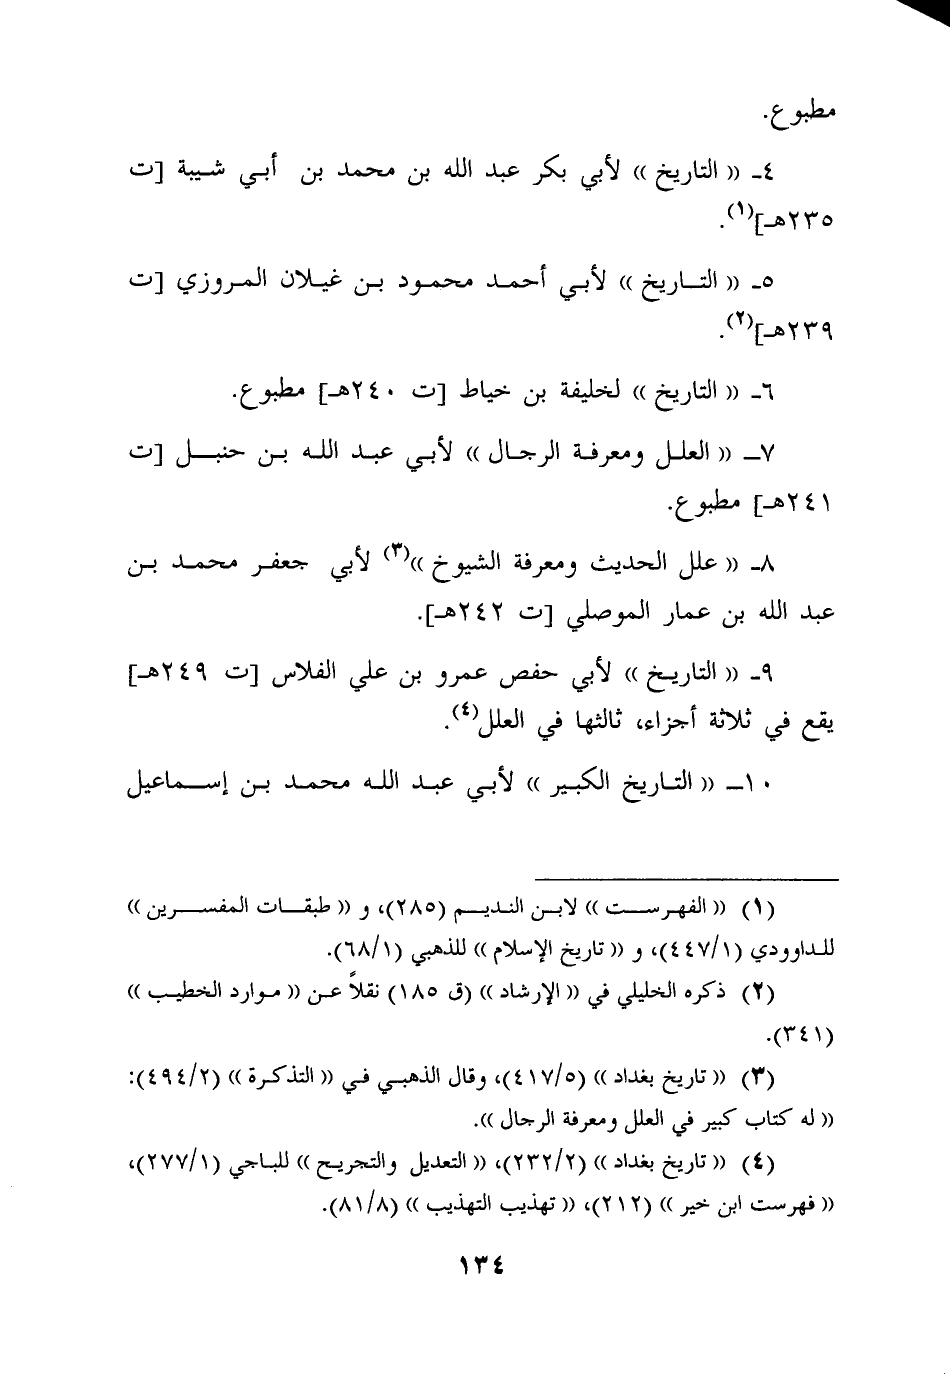 مطبوع.
٤ـ « التاريخ » لأبي بكر عبد الله بن محمد بن أبي شيبة [ت
٢٣٥هـ](١).
٥ـ « التـاريخ » لأبـي أحمـد محمـود بـن غيـلان المـروزي [ت
٢٣٩هـ](٢).
٦ـ « التاريخ » لخليفة بن خياط [ت ٢٤٠هـ] مطبوع.
٧ـ « العلـل ومعرفـة الرجـال » لأبـي عبـد اللـه بـن حنبـل [ت
٢٤١هـ] مطبوع.
٨ـ « علل الحديث ومعرفة الشيوخ »(٣) لأبي جعفـر محمـد بـن
عبد الله بن عمار الموصلي [ت ٢٤٢هـ].
٩ـ « التاريـخ » لأبي حفص عمرو بن علي الفلاس [ت ٢٤٩هـ]
يقع في ثلاثة أجزاء، ثالثها في العلل(٤).
١٠ـ « التـاريخ الكبـير » لأبـي عبـد اللـه محمـد بـن إسـماعيل
(١) « الفهرسـت » لابـن النديـم (٢٨٥)، و « طبقـات المفسـرين »
للـداوودي (٤٤٧/١)، و « تاريخ الإسلام » للذهبي (٦٨/١).
(٢) ذكره الخليلي في « الإرشاد » (ق ١٨٥) نقلاً عـن « مـوارد الخطيـب »
(٣٤١).
(٣) « تاريخ بغداد » (٤١٧/٥)، وقال الذهبـي فـي « التذكـرة » (٤٩٤/٢):
« له كتاب كبير في العلل ومعرفة الرجال ».
(٤) « تاريخ بغداد » (٢٣٢/٢)، « التعديل والتجريـح » للبـاجي (٢٧٧/١)،
« فهرست ابن خير » (٢١٢)، « تهذيب التهذيب » (٨١/٨).
١٣٤